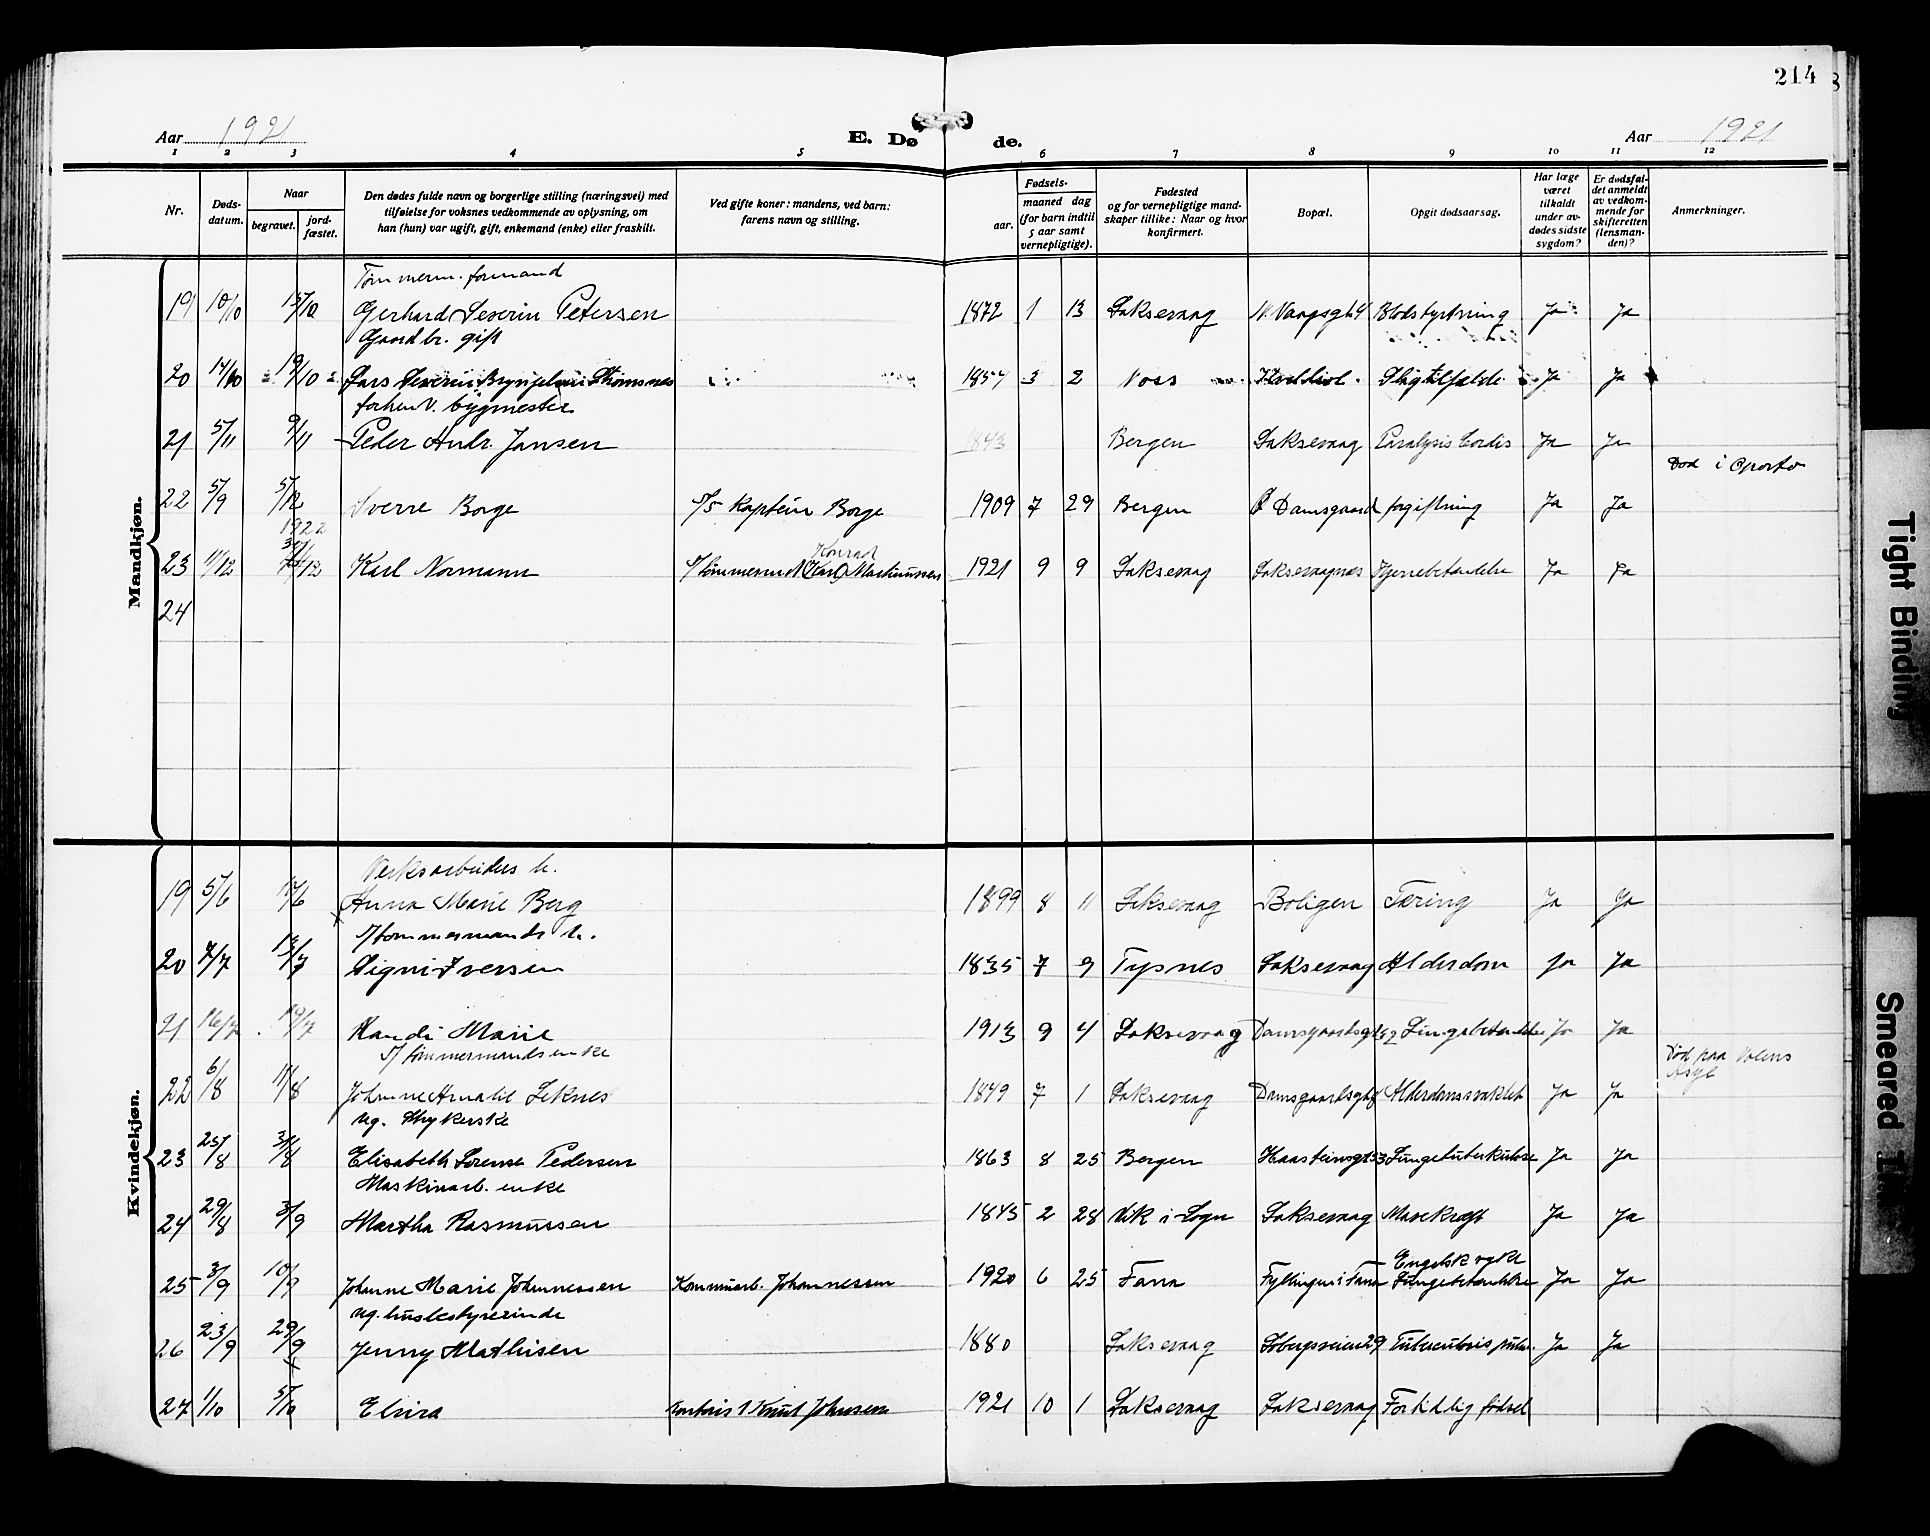 214
Aar 1921
E. Dø de.
Aar 1921
1 2 3 4 5 6 7 8 9 10 11 12
Nr.
Døds-datum.
Naar
begravet.
jord-fæstet.
Den dødes fulde navn og borgerlige stilling (næringsvei) med
tilføielse for voksnes vedkommende av oplysning, om
han (hun) var ugift, gift, enkemand (enke) eller fraskilt.
Ved gifte koner: mandens, ved barn:
farens navn og stilling.
Fødsels-
aar.
maaned dag
(for barn indtil
5 aar samt
vernepligtige).
Fødested
og for vernepligtige mand-
skaper tillike: Naar og hvor
konfirmert.
Bopæl.
Opgit dødsaarsag.
Har læge
været
tilkaldt
under av-
dødes sidste
sygdom?
Er dødsfal-
det anmeldt
av vedkom-
mende for
skifteretten
(lensman-
den)?
Anmerkninger.
Mandkjøn.
Tømmerm. formand
19 10/10 15/10 Gerhard Severin Petersen 1872 1 13 Laksevaag N. Vaagsgt 4 Blodstyrtning Ja Ja
Gaardbr. gift
20 14/10 19/10 Lars Severin Brynjelsen Strømsnes 1857 3 2 Voss Slagtilfælde Ja Ja
forhenv. bygmester
21 5/11 9/11 Peder Andr. Jansen 1843 Bergen Laksevaag Paralysis Cordis Ja Ja
Død i Oporto
22 5/9 5/12 Sverre Borge s/s Kaptein Borge 1909 7 29 Bergen Ø Damsgaard forgiftning Ja Ja
1922
Konrad
23 11/12 Karl Normann s/ tømmermd (Karl) Martinussen 1921 9 9 Laksevaag Laksevaagnes Hjernebetændelse Ja Ja
24
Kvindekjøn.
Verksarbeiders h.
19 5/6 Anna Marie Berg 1899 8 11 Laksevaag Boligen Tæring Ja Ja
s/tømmermands h.
20 7/7 13/7 Signi Iversen 1835 7 9 Tysnes Laksevaag Alderdom Ja Ja
21 16/7 19/7 Randi Marie 1913 9 4 Laksevaag Damsgaardsgt 32 Lungebetændelse Ja Ja
s/ tømmermands enke
Død paa Velens
Asyl
22 6/8 11/8 Johanne Amalie Seknes 1849 7 1 Laksevaag Damsgaardsgt Alderdomssvakhet Ja Ja
ug. Strykerske
23 25/8 31/8 Elisabeth Lorense Pedersen 1863 8 25 Bergen Haasteinsgt 53 Lungetuberkulose Ja Ja
Maskinarb. enke
24 29/8 3/9 Martha Rasmussen 1845 2 28 Vik i Sogn Laksevaag Mavekræft Ja Ja
Engelsk syke
25 3/9 10/9 Johanne Marie Johannessen Kommunearb. Johannessen 1920 6 25 Fana Fyllingen i Fana Lungebetændelse Ja Ja
ug. husbestyrerinde
26 23/9 29/9 Jenny Mathisen 1880 Laksevaag Søbergsveien 29 Tuberculosis pulm. Ja Ja
27 1/10 5/10 Elvira Kontorist Knut Johnsen 1921 10 1 Laksevaag Laksevaag Fortidlig fødsel
Tight Binding
Smeared